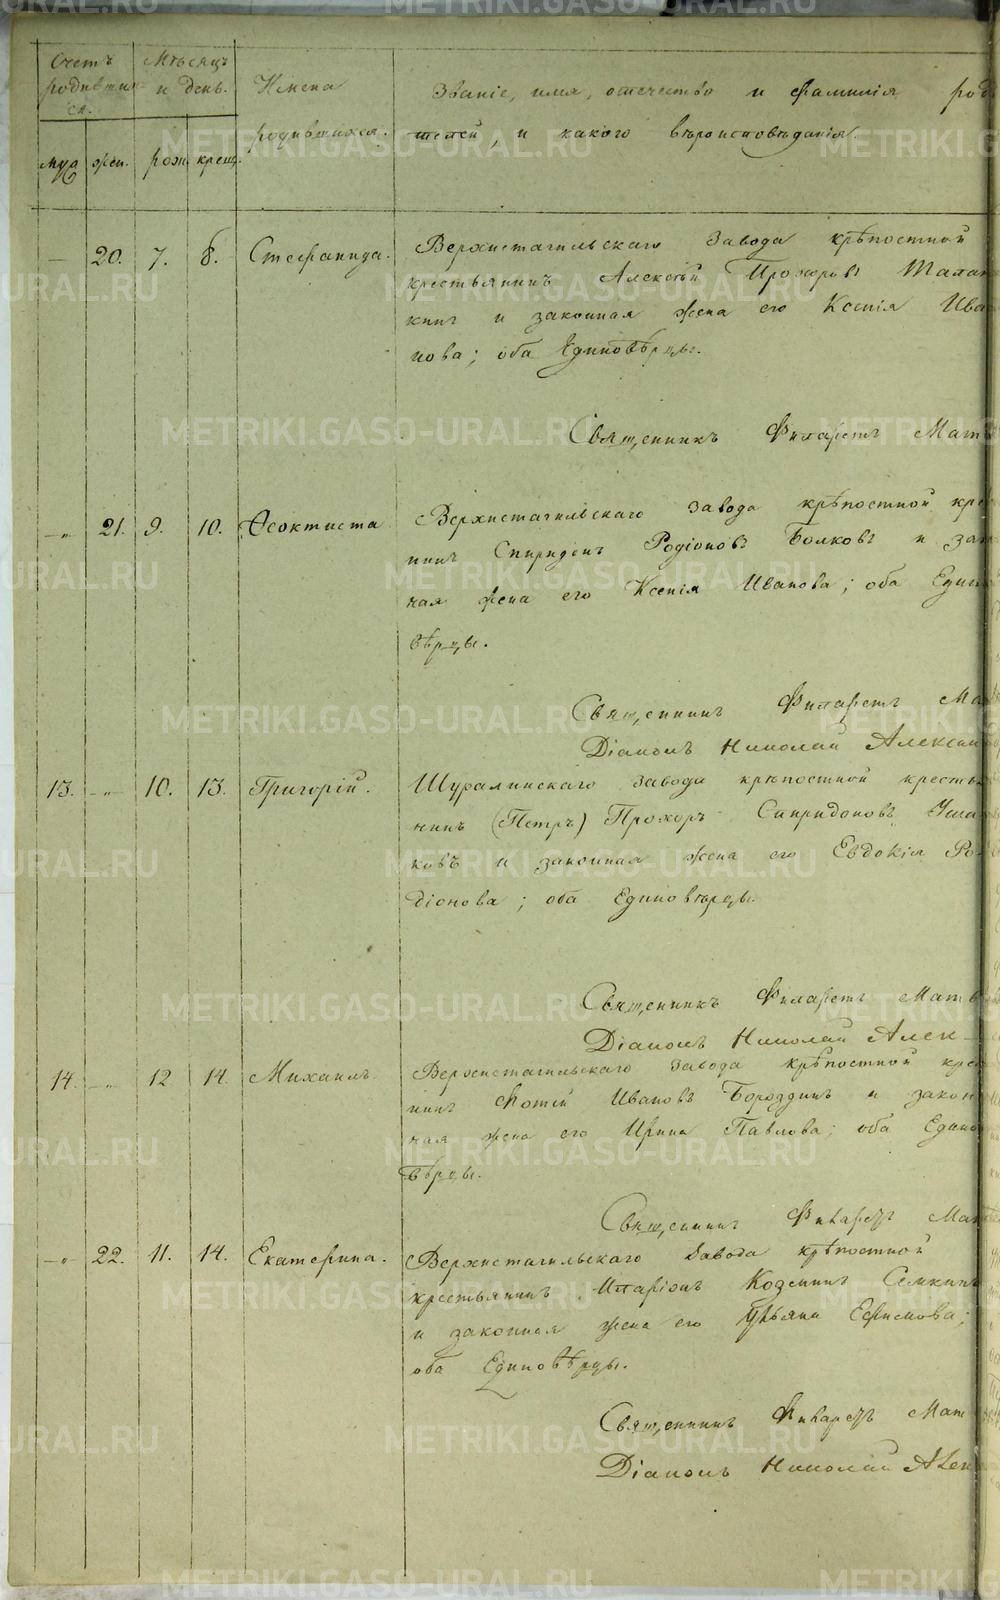 Счетъ родившихся.
Мѣсяцъ и день.
Имена родившихся.
Званіе, имя, отечество и фамилія роди
телей, и какого вѣроисповѣданія.
муж. жен. рож. крещ.
— 20. 7. 8. Стефанида.
Верхнетагильскаго завода крѣпостной
крестьянинъ Алексѣй Прохоровъ Талан
кинъ и законная жена его Ксенія Ива
нова; оба Единовѣрцы.
Священникъ Филаретъ Мат
—„ 21. 9. 10. Ѳеоктиста
Верхнетагильскаго завода крѣпостной кре
нинъ Спиридонъ Родіоновъ Волковъ и зако
ная жена его Ксенія Иванова; оба Едино
вѣрцы.
Священникъ Филаретъ Мат
Діаконъ Николай Алексан
13. —„— 10. 13. Григорій.
Шуралинскаго завода крѣпостной крестья
нинъ (Петръ) Прохоръ Спиридоновъ Уша
ковъ и законная жена его Евдокія Ро-
діонова; оба Единовѣрцы.
Священникъ Филаретъ Матв
Діаконъ Николай Алек
14. —„ 12 14. Михаилъ.
Верхнетагильскаго завода крѣпостной крес
нинъ Фотей Ивановъ Бороздинъ и закон
ная жена его Ирина Павлова; оба Едино
вѣрцы.
Священникъ Филаретъ Мат
—„ 22. 11. 14. Екатерина.
Верхнетагильскаго завода крѣпостной
крестьянинъ Иларіонъ Козминъ Семкинъ
и законная жена его Ульяна Ефимова;
оба Единовѣрцы.
Священникъ Филаретъ Мат
Діаконъ Николай Алек
METRIKI.GASO-URAL.RU